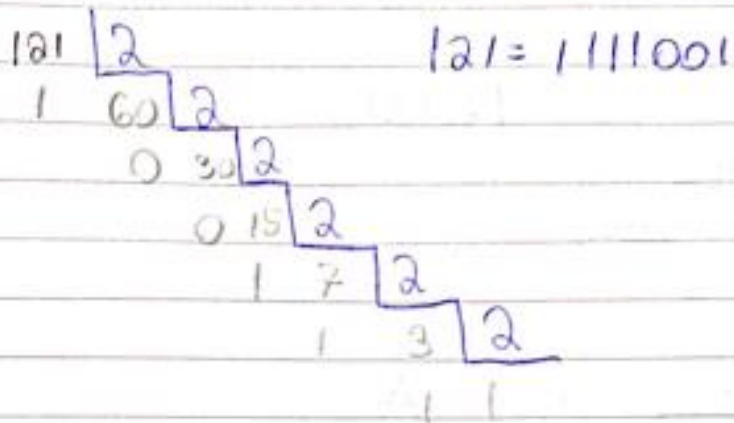 121 2 121 = 1111001
1 60 2
0 30 2
0 15 2
1 7 2
1 3 2
1 1